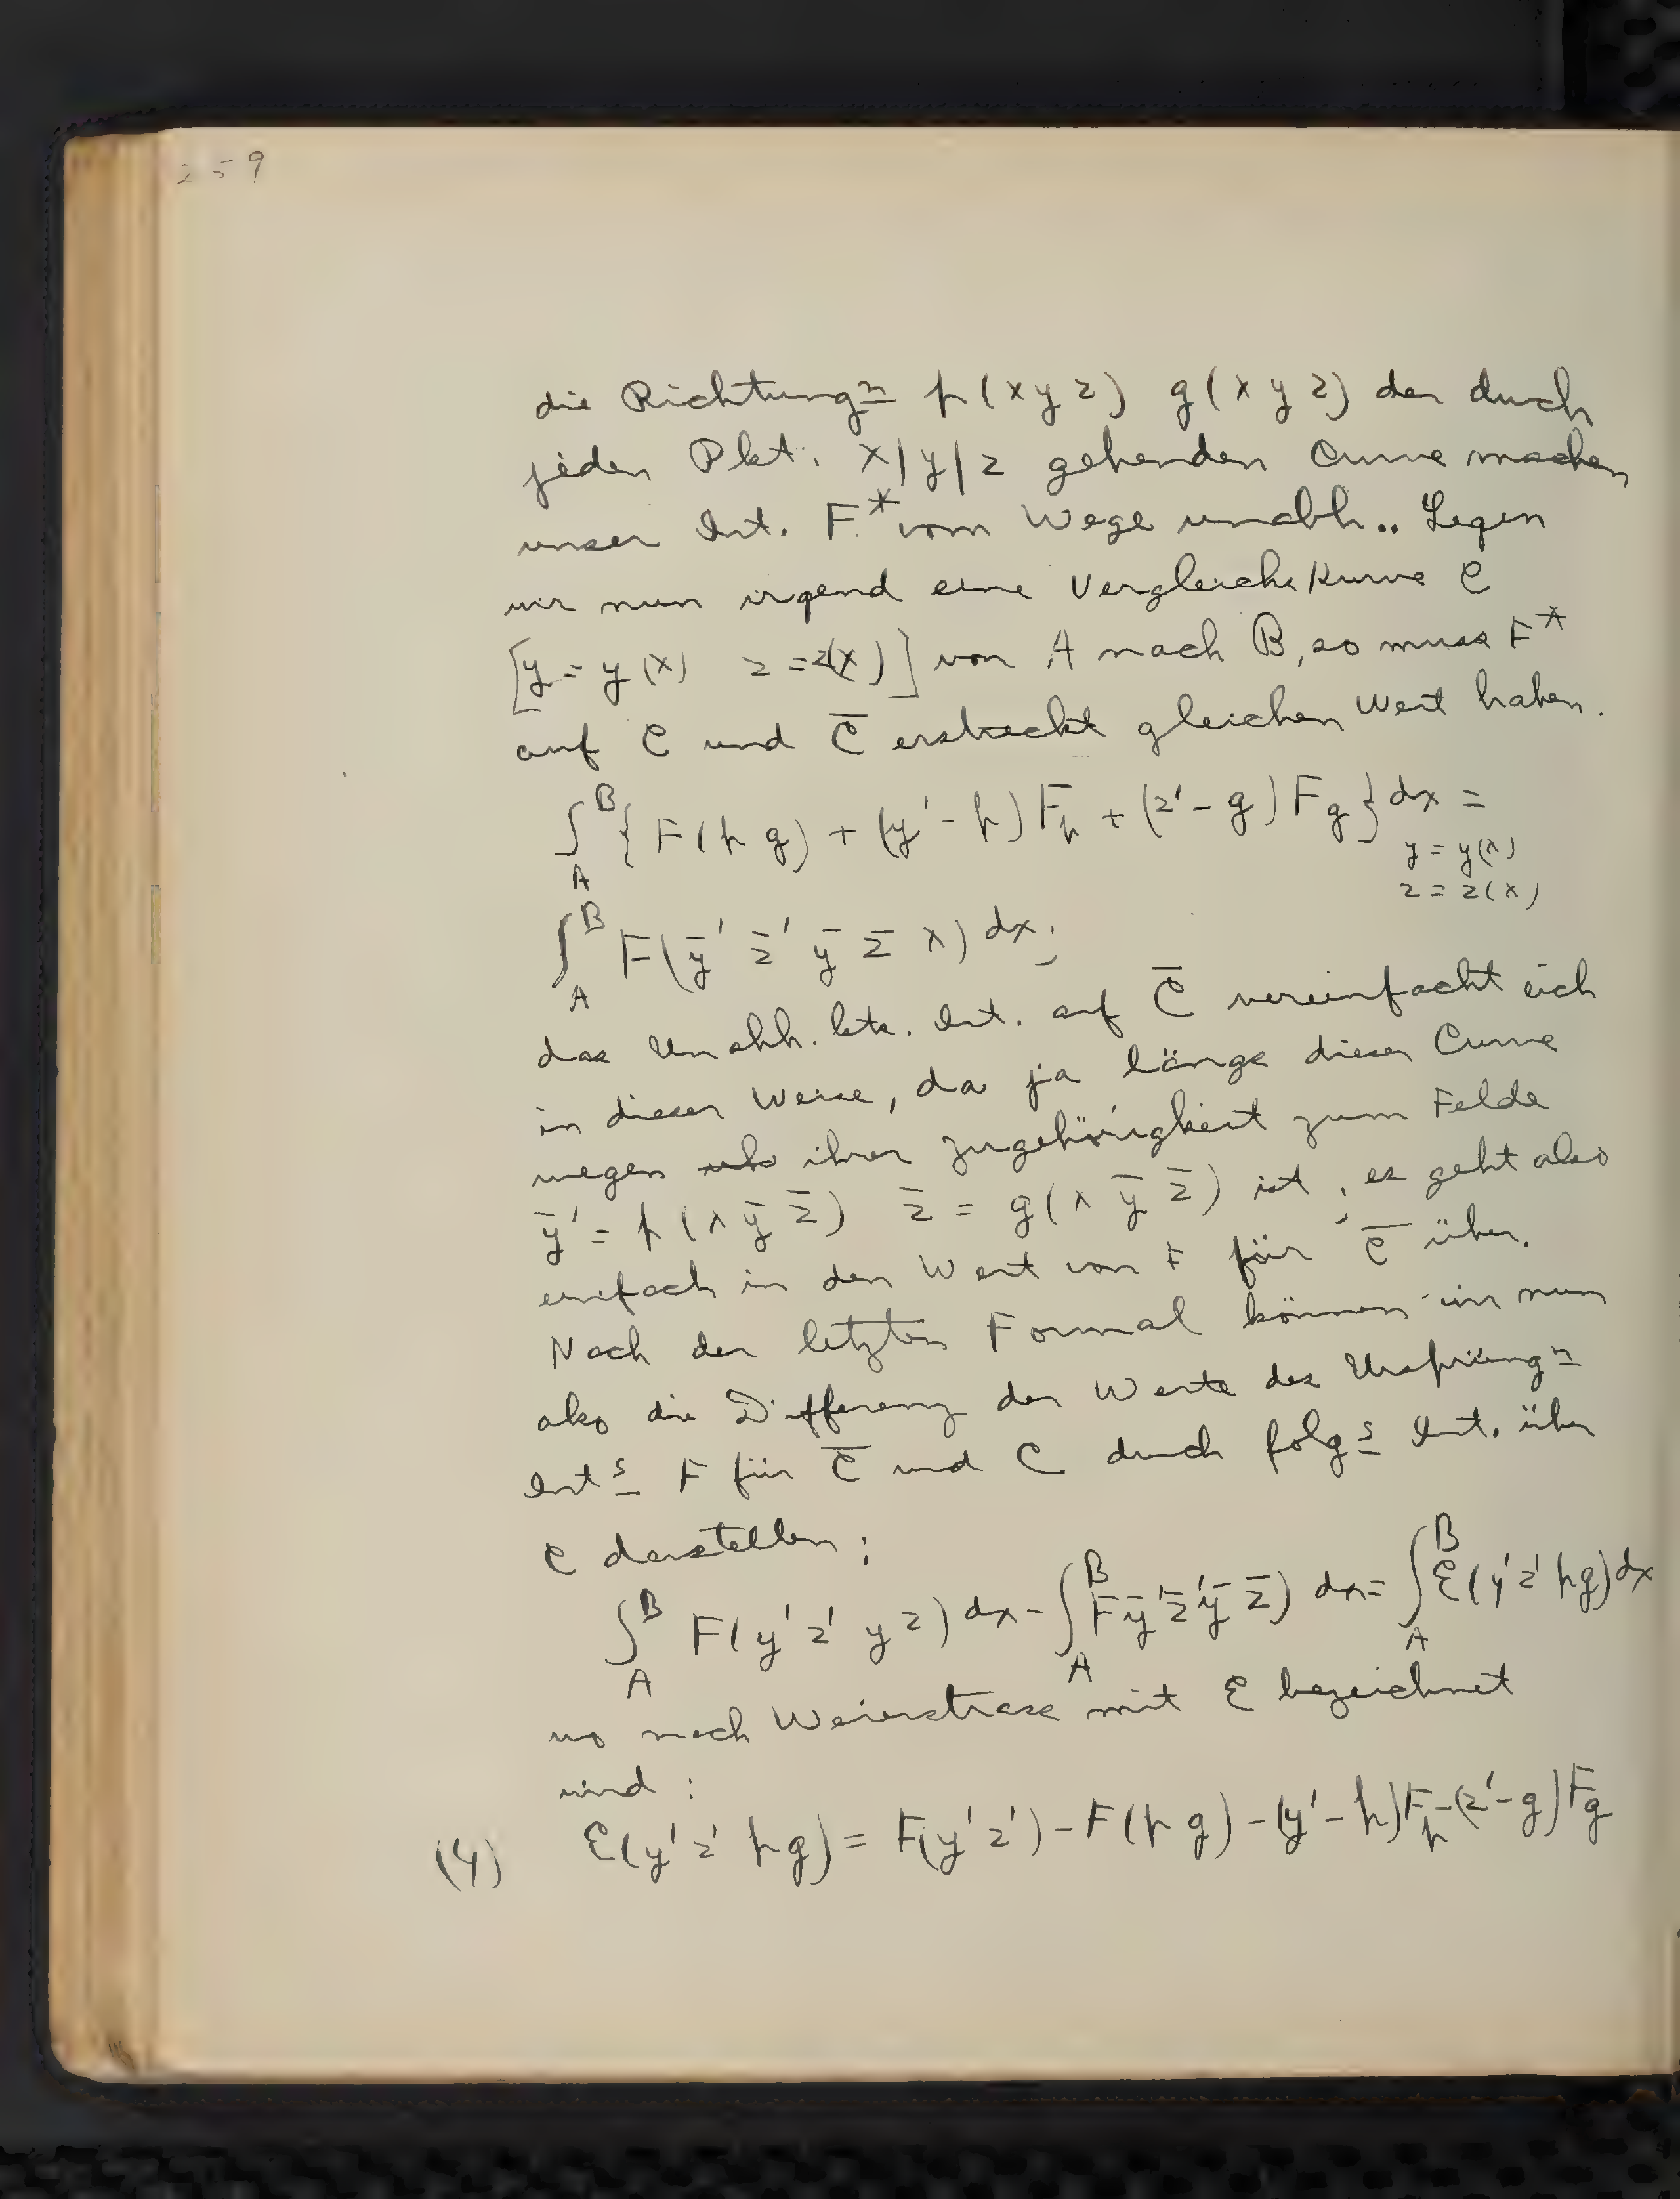 259
die Richtungn p(xyz) q(xyz) der durch
jeden Pkt. x|y|z gehenden Curve machen
unser Int. F* vom Wege unabh.. Legen
wir nun irgend eine Vergleichskurve C
[y = y(x) z = z(x)] von A nach B, so muss F*
auf C und C̄ erstreckt gleichen Wert haben.
∫_A^B {F(p q) + (y' - p) F_p + (z' - q) F_q} dx =
y = y(x)
z = z(x)
∫_A^B F(ȳ' z̄' ȳ z̄ x) dx;
das Unabh. kts. Int. auf C̄ vereinfacht sich
in dieser Weise, da ja längs dieser Curve
wegen ihrer Zugehörigkeit zum Felde
ȳ' = p(x ȳ z̄) z̄ = q(x ȳ z̄) ist; es geht also
einfach in den Wert von F für C̄ über.
Nach der letzten Formal können wir nun
also die Differenz der Werte des Ursprüngn
Ints F für C̄ und C durch folgs Int. über
C darstellen:
∫_A^B F(y' z' y z) dx - ∫_A^B F̄ ȳ' z̄' ȳ z̄) dx = ∫_A^B ℰ(y' z' p q) dx
wo nach Weierstrass mit ℰ bezeichnet
wird:
(4) ℰ(y' z' p q) = F(y' z') - F(p q) - (y' - p) F_p - (z' - q) F_q